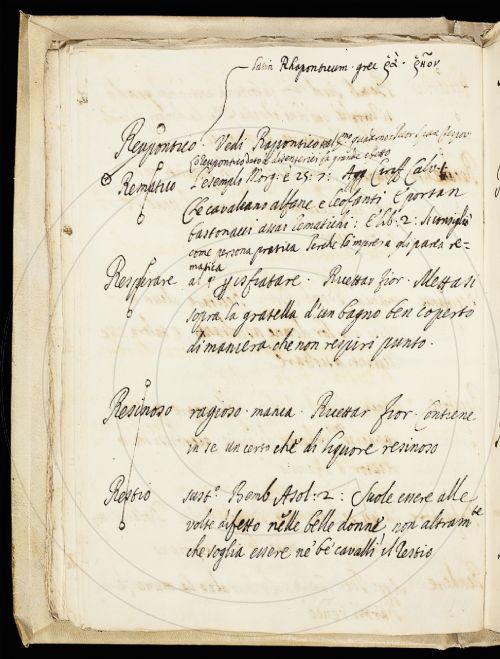 Latin Rhaponticum. grec ῥᾶ. ῥῆον
Reupontico. Vedi Rapontico nel
Rematico L'esemp. Morg: E 25: 7:
Che cavalcano alfane e leofanti E portan
bastonacci assai Rematichi: E lib: 2: Si consigliò
come persona pratica Perche l'impresa gli parea re=
matica
Respirare al p Isfiatare. Ricettar fior. Mettasi
sopra la gratella d'un bagno ben coperto
di maniera che non respiri punto.
Resinoso ragioso. manca. Ricettar Fior. Contiene
in se un certo che di liquore resinoso
Restio sust.o Bemb Asol: 2: Suole essere alle
volte difetto nelle belle donne, non altramte
che soglia essere ne' be' cavalli il restio